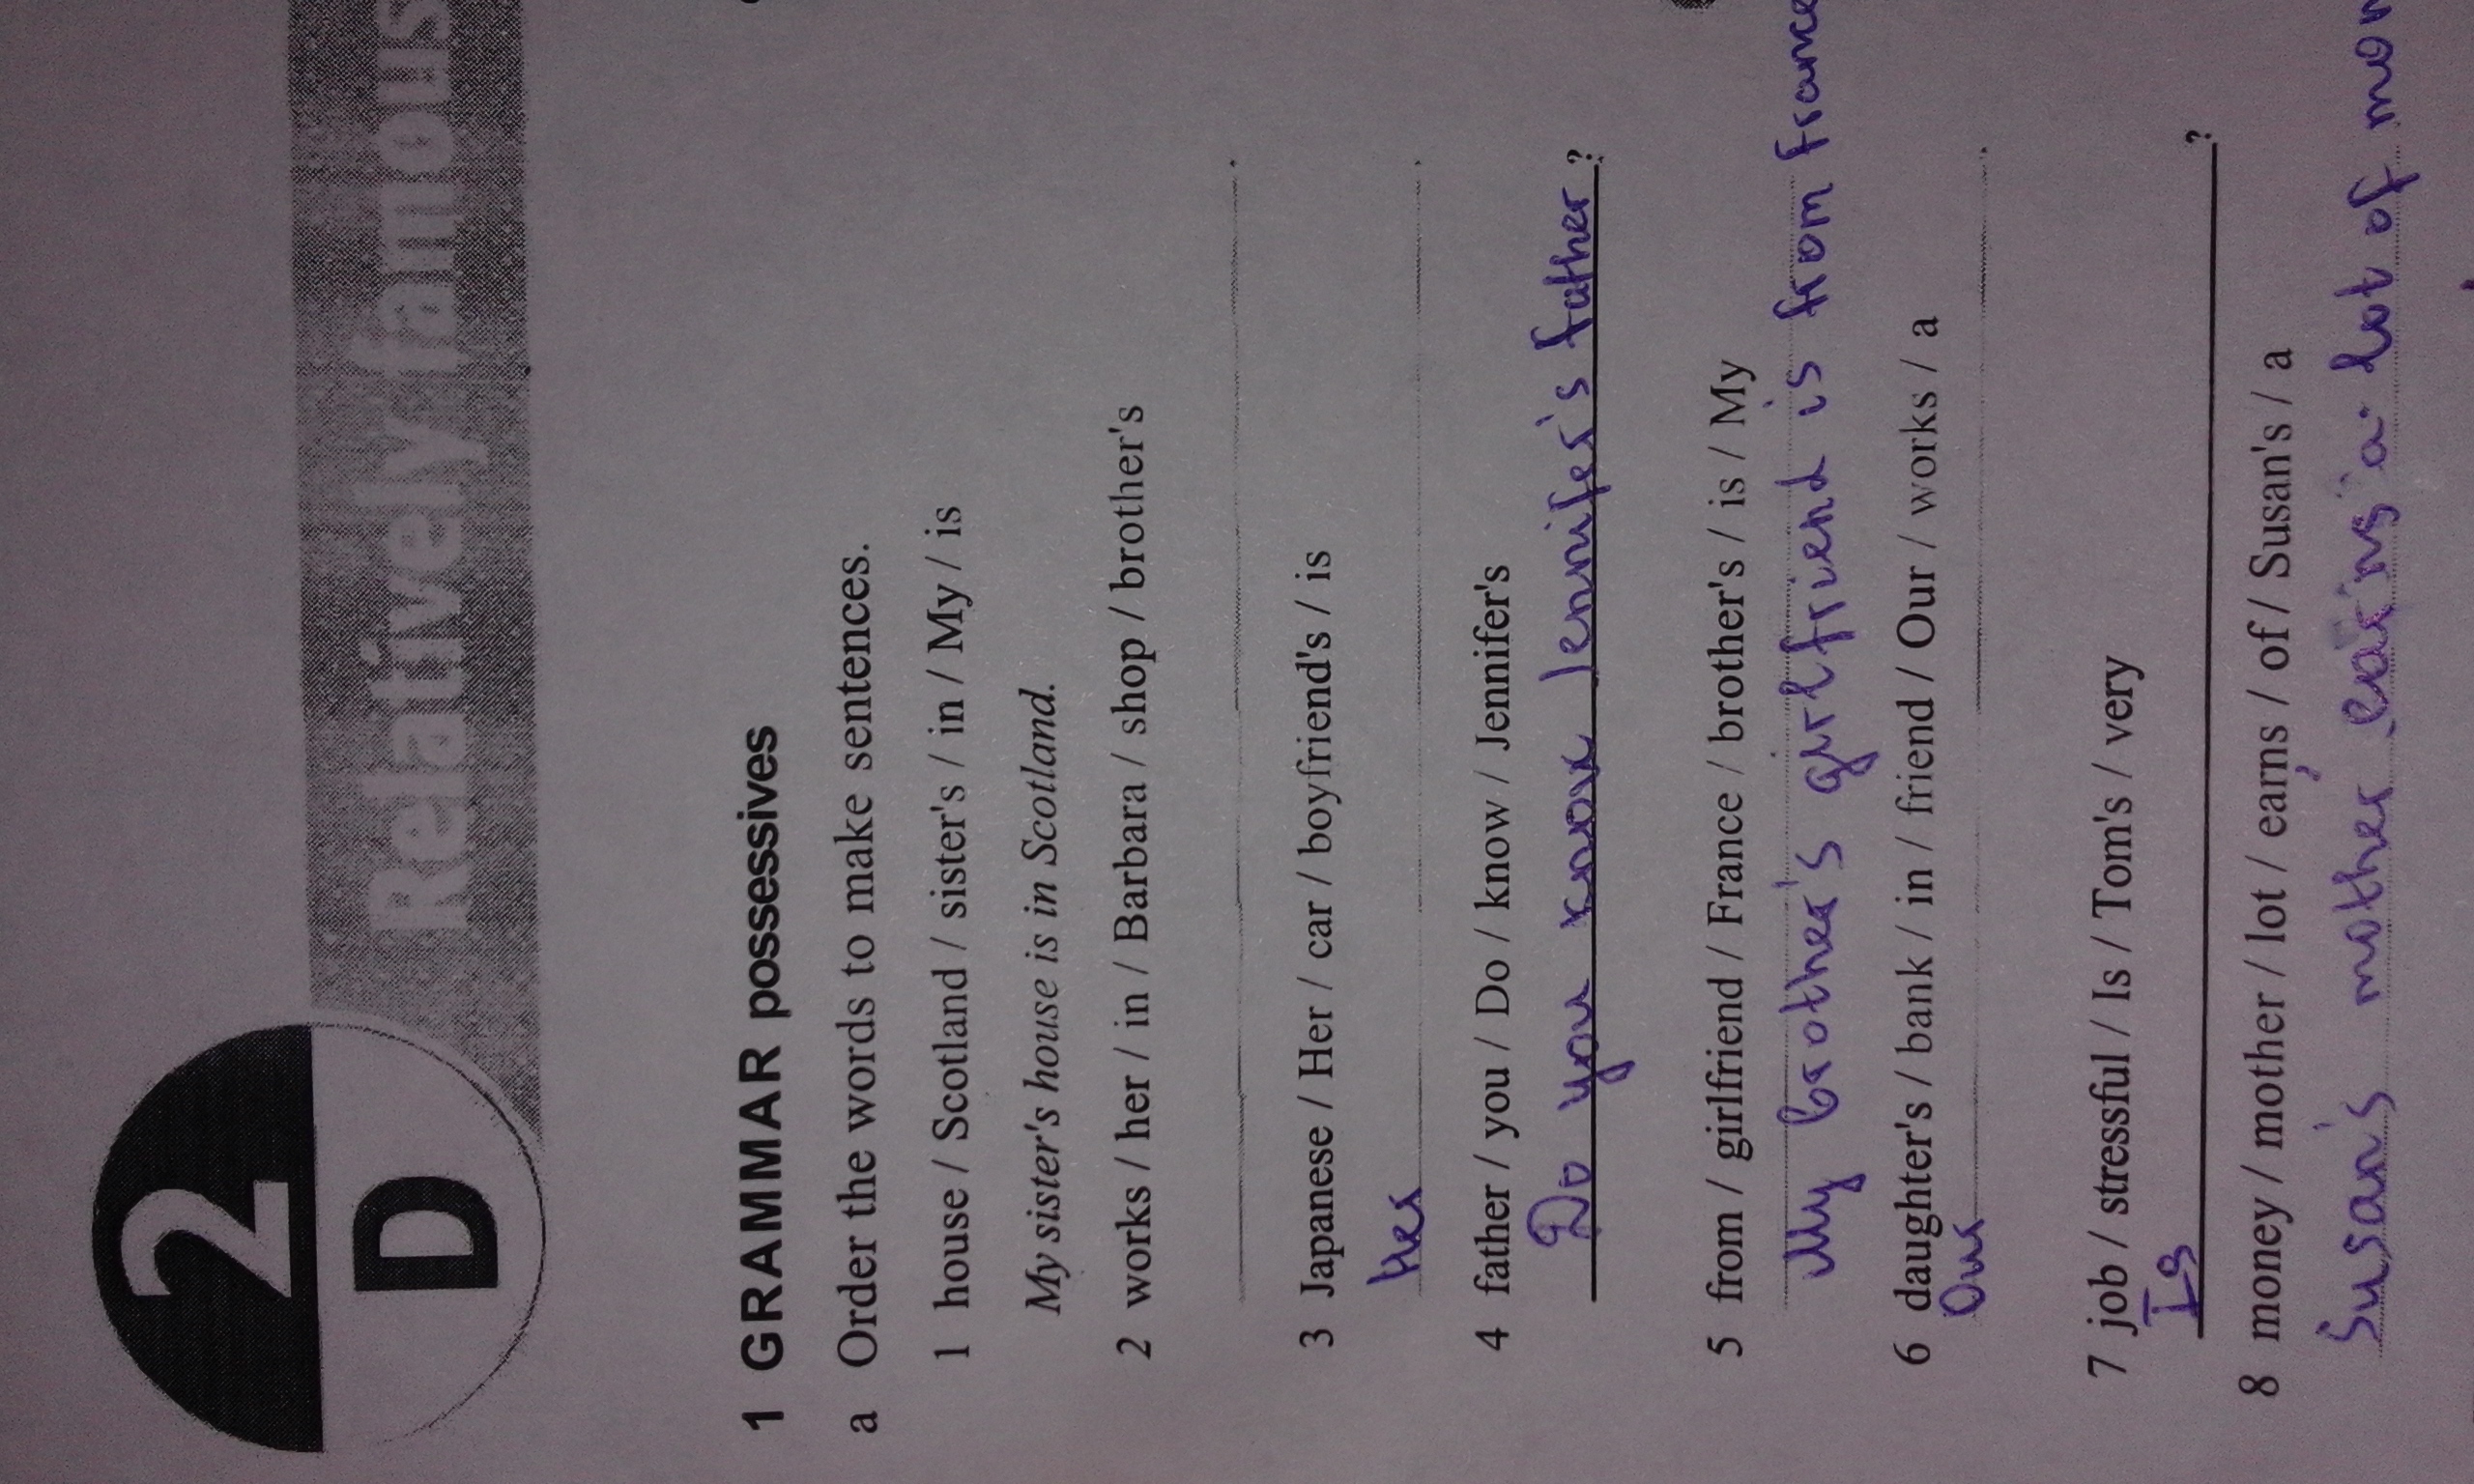 2
D
Relatively famous
1 GRAMMAR possessives
a Order the words to make sentences.
1 house / Scotland / sister's / in / My / is
My sister's house is in Scotland.
2 works / her / in / Barbara / shop / brother's
3 Japanese / Her / car / boyfriend's / is
Her
4 father / you / Do / know / Jennifer's
Do you know Jennifer's father ?
5 from / girlfriend / France / brother's / is / My
My brother's girlfriend is from france
6 daughter's / bank / in / friend / Our / works / a
Our
7 job / stressful / Is / Tom's / very
Is ?
8 money / mother / lot / earns / of / Susan's / a
Susan's mother earns a lot of